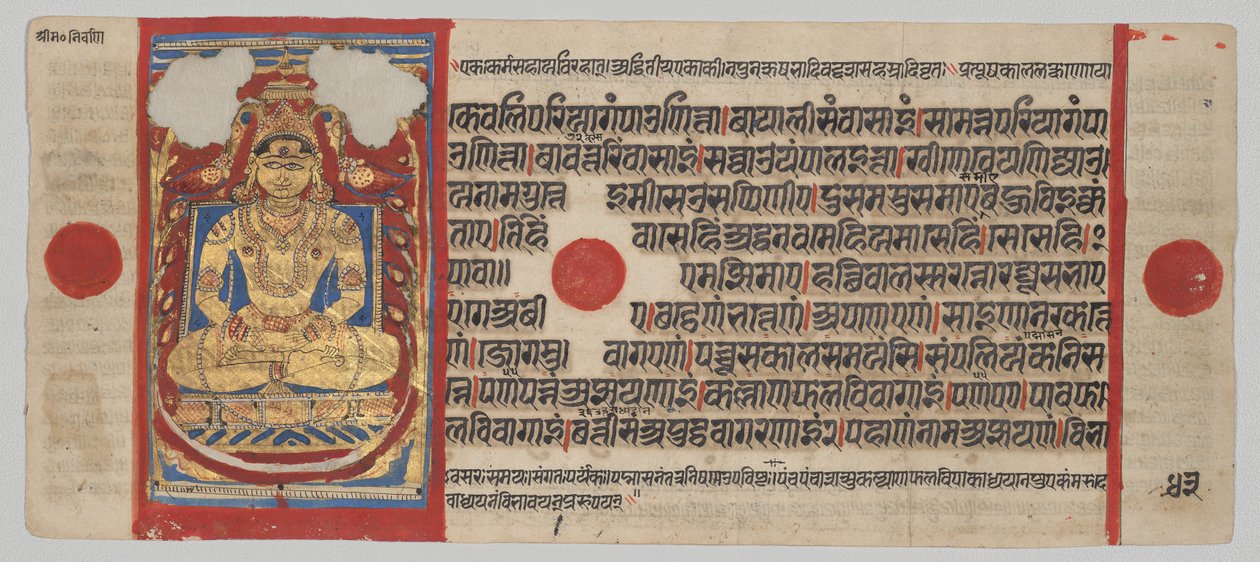 श्रीम० निर्वाण
एकाकर्मसहायविरहात्। अद्वितीय एकाकी। न पुनऋषभादिवद्दशसहस्रादिवृतः। प्रत्यूषकाललक्षणो यो
केवलिपरिआगं पाउणित्ता। बायालीसं वासाइं। सामन्नपरियागं पा
उणित्ता। बावत्तरिं वासाइं। सव्वाउयं पालइत्ता। खीणे वेयणिज्जाउ
य नामगुत्ते इमीसे उसप्पिणीए। दुसमसुसमाए बहुविइक्कं
ताए। तिहिं वासेहिं अद्धनवमेहि य मासेहिं। सेसेहिं।
पावाए मज्झिमाए। हत्थिवालस्स रन्नो रज्जूसभाए
एगे अबीए। छट्ठेणं भत्तेणं। अपाणएणं। साइणा नक्खत्ते
णं। जोगमुवागएणं। पच्चूसकालसमयंसि। संपलियंकनिस
न्ने। पणपन्नं अज्झयणाइं। कल्लाणफलविवागाइं। पणपन्नं। पावफ
लविवागाइं। छत्तीसं अपुट्ठवागरणाइं २। पहाणं नाम अज्झयणं। विभा
वसरः समयः। संगतः पर्यंकः। पद्मासनं तत्र निषण्ण उपविष्टः। पंचपंचाशत्सु कल्याणफलविपाकाध्ययनेषु
ध्ययनं विभावयन् प्ररूपयन्